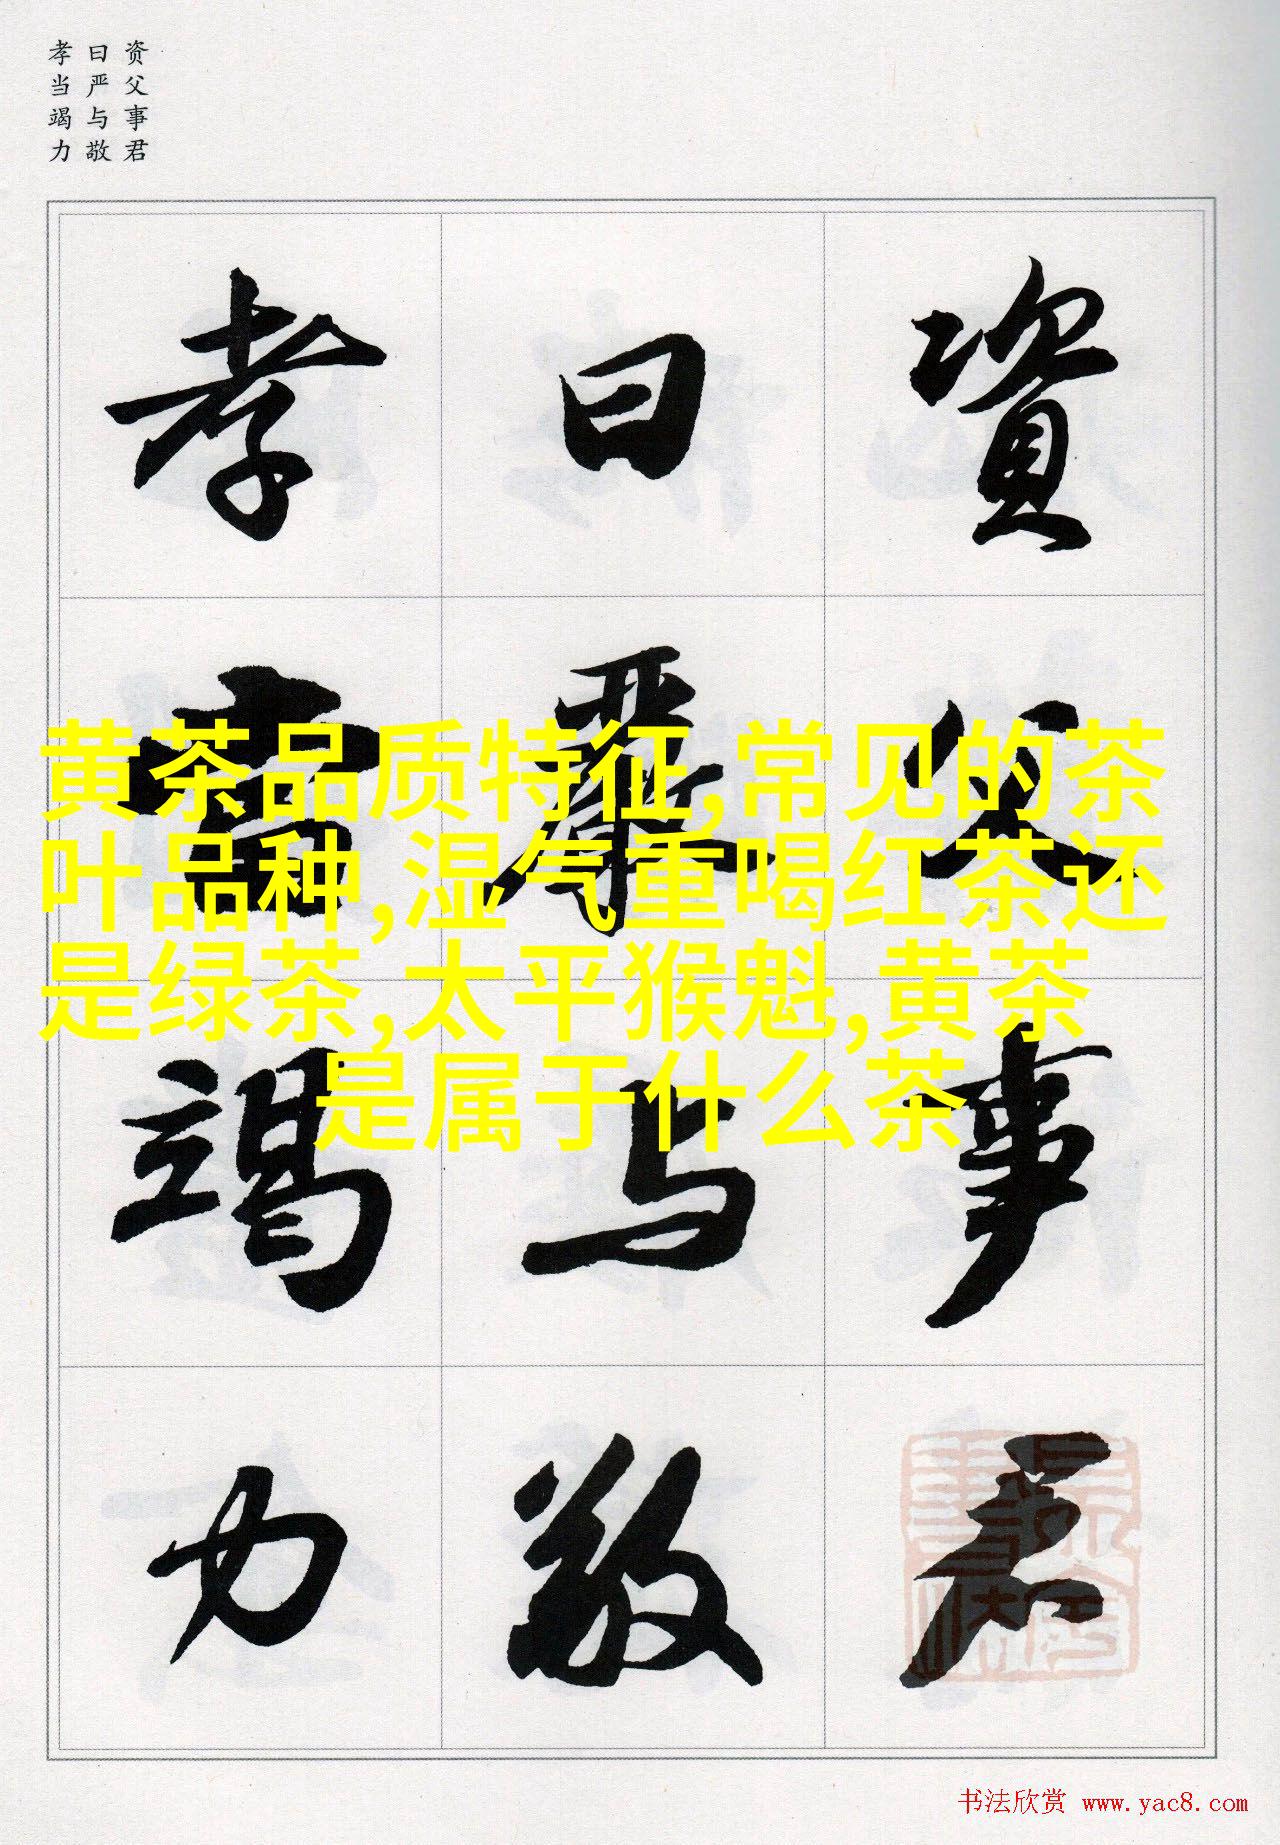 资父事君
曰严与敬
孝当竭力
資父事君
曰嚴与敬
孝當竭力
黄茶品质特征,常见的茶
叶品种,湿气重喝红茶还
是绿茶,太平猴魁,黄茶
是属于什么茶
书法欣赏 www.yac8.com